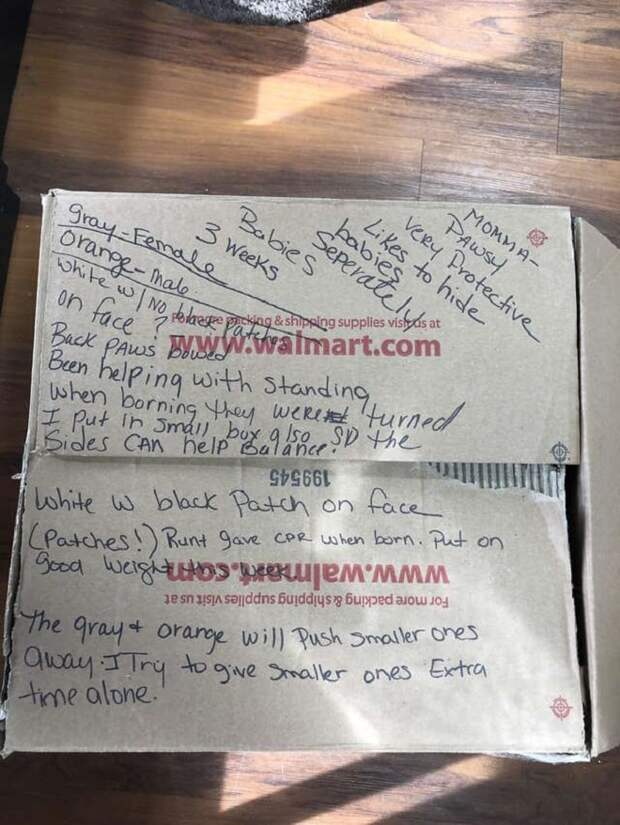 MOMMA-
PAWSY
Very Protective
Likes to hide
babies
Seperately
Babies
3 weeks
gray-Female
Orange-Male
White w/ No black Patches
on face ?
For more packing & shipping supplies visit us at
www.walmart.com
Back PAWS bowed
Been helping with standing
when borning they were turned
I Put in small box also SD the
Sides CAN help Balance.
199545
White w black Patch on face
(Patches!) Runt gave CPR when born. Put on
good weight this week
www.walmart.com
For more packing & shipping supplies visit us at
The gray & orange will Push smaller ones
away. I Try to give smaller ones Extra
time alone.